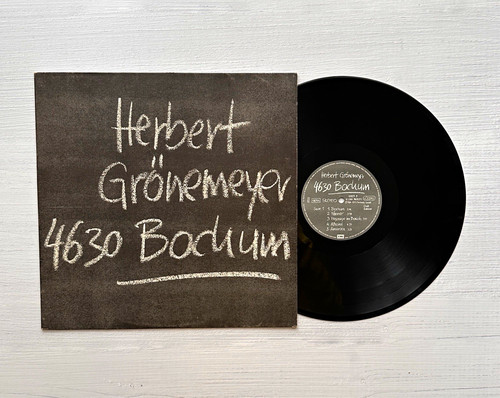 Herbert
Grönemeyer
4630 Bochum
Herbert Grönemeyer
4630 Bochum
STEREO
Seite 1
1. Bochum
2. Männer
3. Flugzeuge im Bauch
4. Alkohol
5. Amerika
EMI